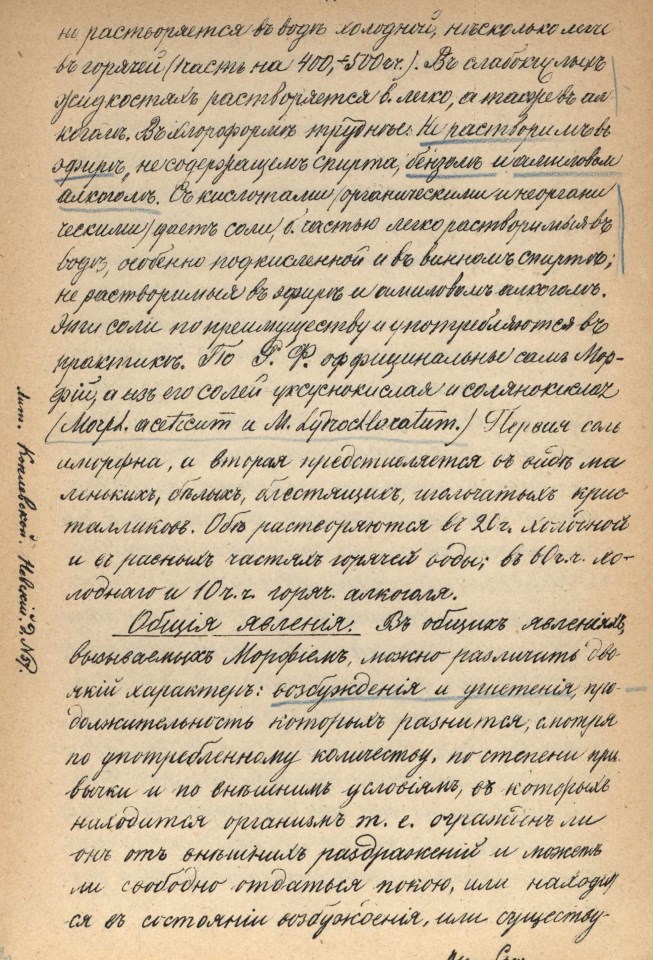 не растворяется въ водѣ холодной, нѣсколько легче
въ горячей (1 часть на 400,-500 чч.). Въ слабокислыхъ
жидкостяхъ растворяется б. легко, а также въ ал-
коголѣ. Въ хлороформѣ труднѣе. Не растворимъ въ
эфирѣ, не содержащемъ спирта, бензолѣ и амиловомъ
алкоголѣ. Съ кислотами (органическими и неоргани
ческими) даетъ соли, б. частью легко растворимыя въ
водѣ, особенно подкисленной и въ винномъ спиртѣ;
не растворимыя въ эфирѣ и амиловомъ алкоголѣ.
Эти соли по преимуществу и употребляются въ
практикѣ. По Р. Ф. оффицинальны самъ Мор-
фій, а изъ его солей уксуснокислая и солянокислая
(Morph. aceticum и M. hydrochloratum.) Первая соль
аморфна, а вторая представляется въ видѣ ма
ленькихъ, бѣлыхъ, блестящихъ, игольчатыхъ крис
талликовъ. Обѣ растворяются въ 20 ч. холодной
и въ равныхъ частяхъ горячей воды; въ 60 ч.ч. хо-
лоднаго и 10 ч.ч. горяч. алкоголя.
Общія явленія. Въ общихъ явленіяхъ,
вызываемыхъ Морфіемъ, можно различать дво-
якій характеръ: возбужденія и угнетенія, про-
должительность которыхъ разнится, смотря
по употребленному количеству, по степени при
вычки и по внѣшнимъ условіямъ, въ которыхъ
находится организмъ т. е. огражденъ ли
онъ отъ внѣшнихъ раздраженій и можетъ
ли свободно отдаться покою, или находит
ся въ состояніи возбужденія, или существу-
Лит. Невскій. Д. №